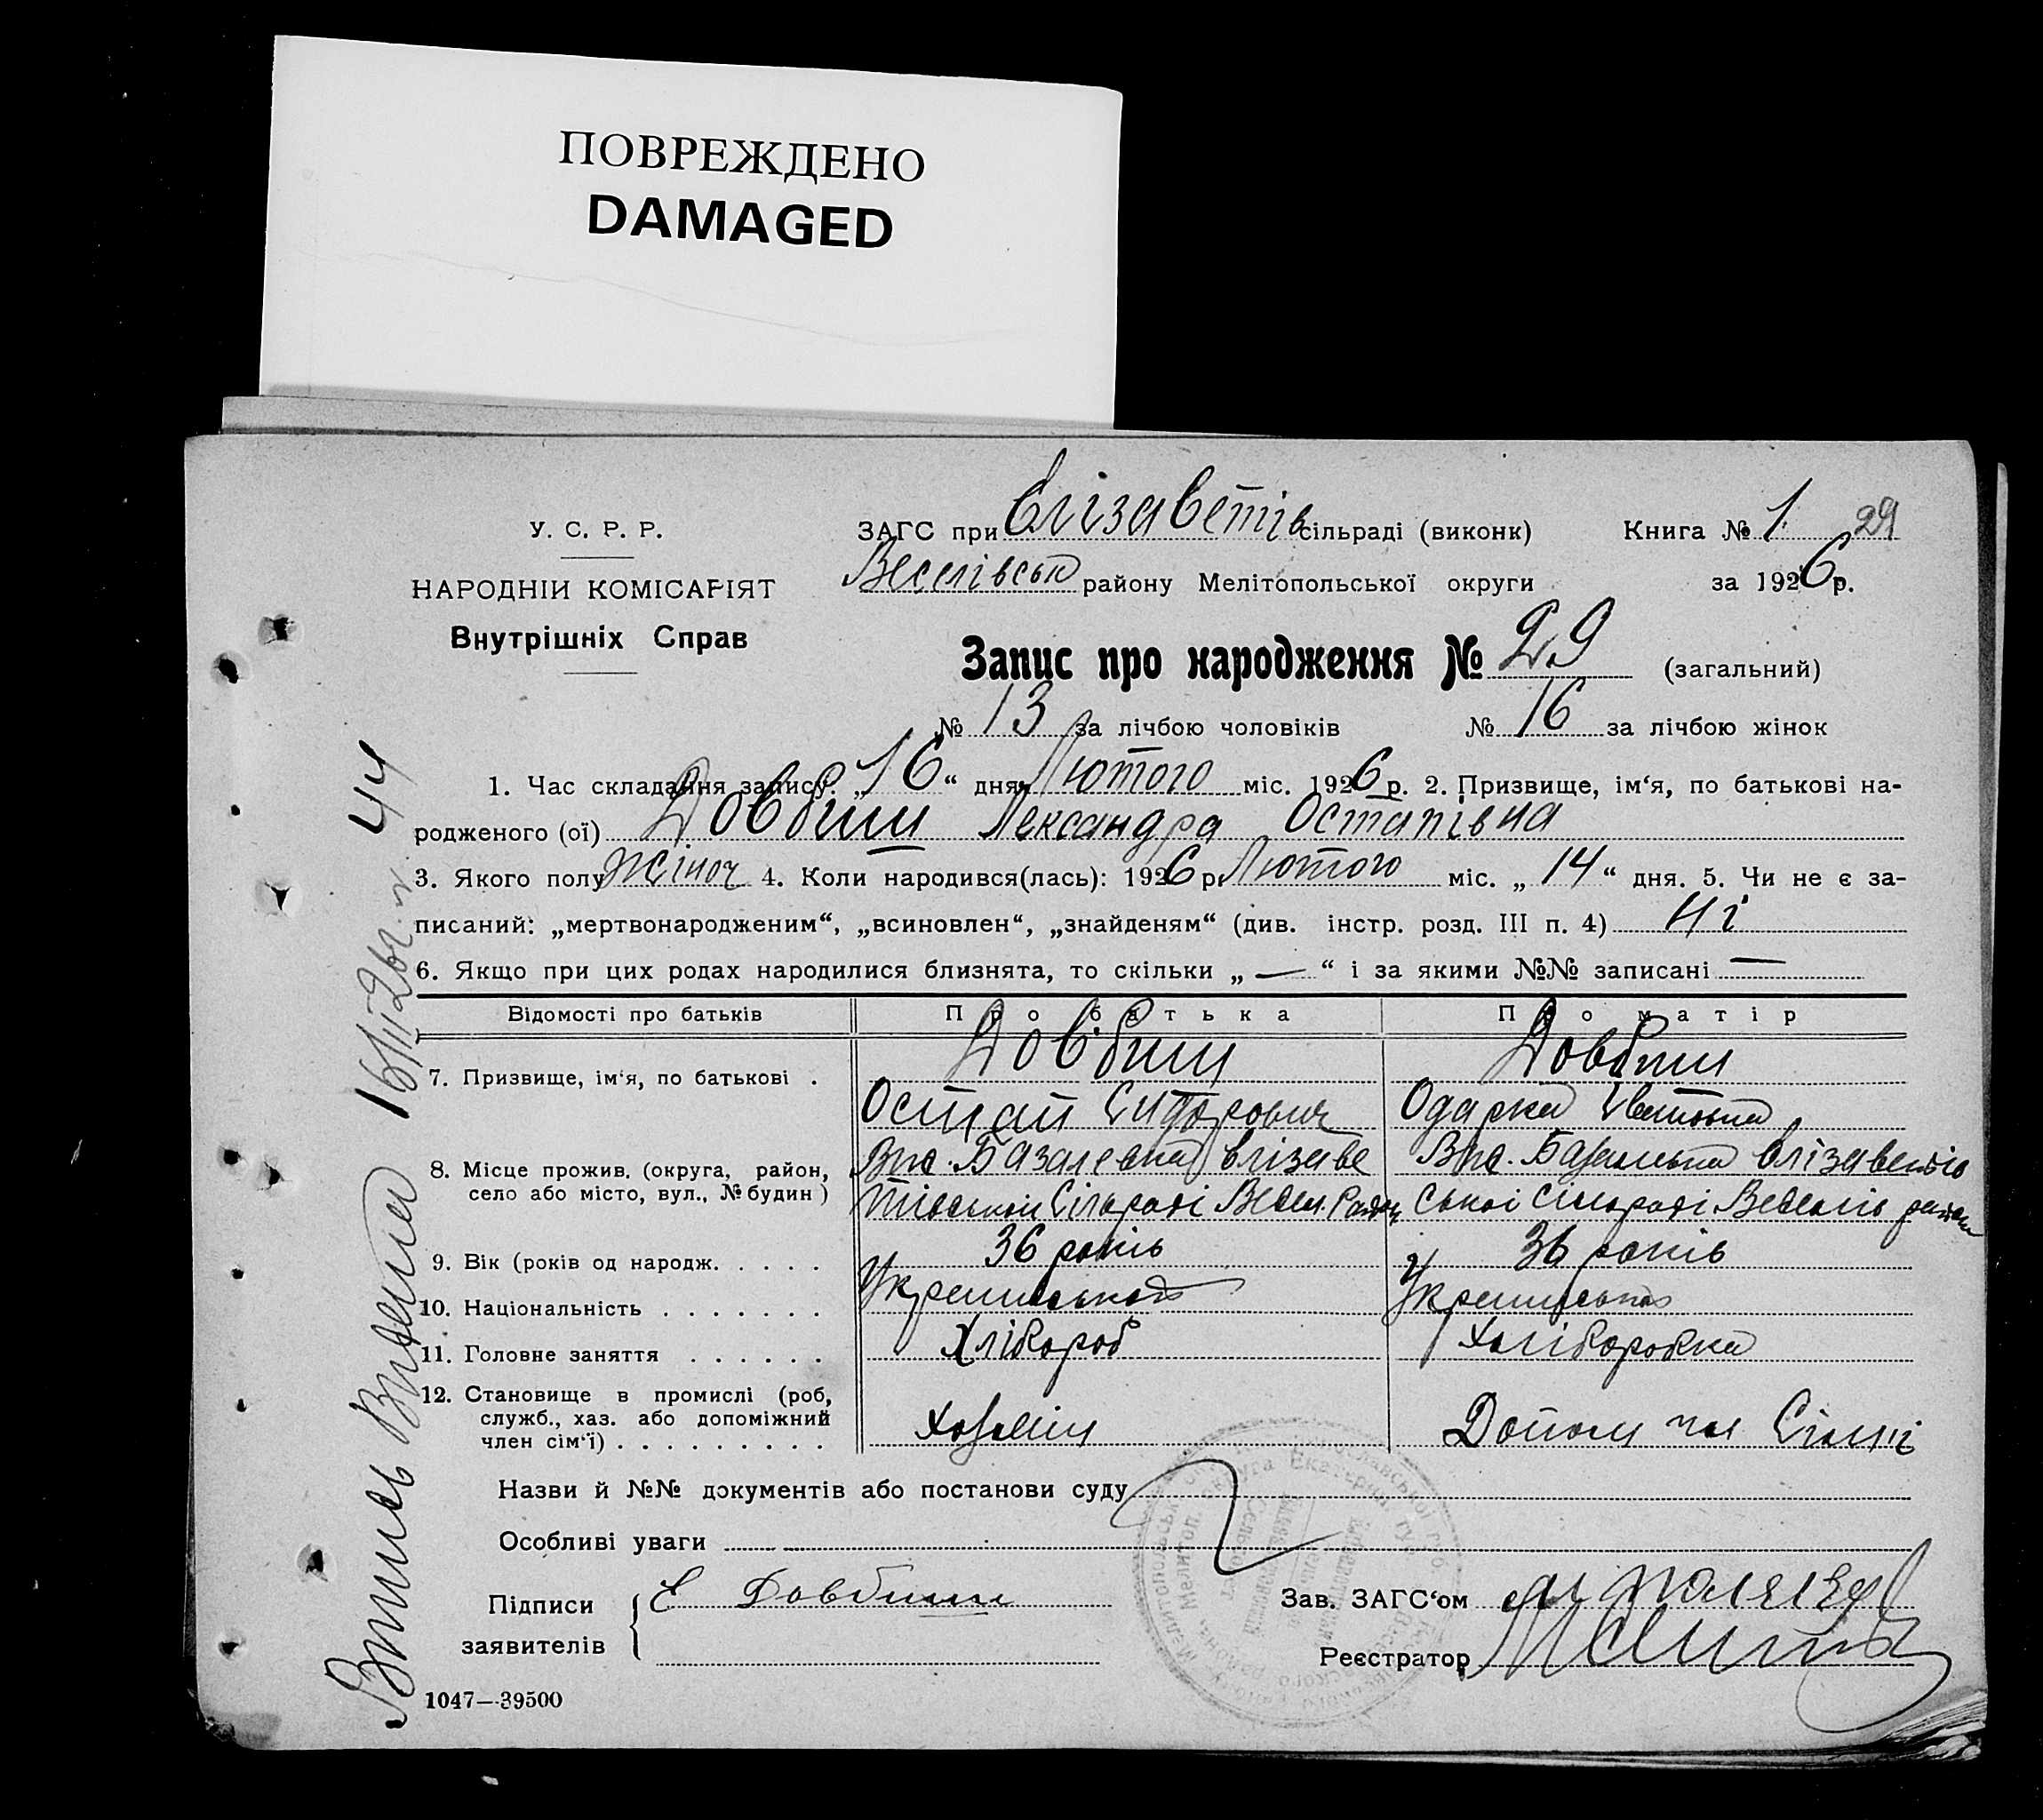 ПОВРЕЖДЕНО
DAMAGED
У. С. Р. Р.
НАРОДНІЙ КОМІСАРІЯТ
Внутрішніх Справ
ЗАГС при Єлізаветів сільраді (виконк) Книга № 1. 29
Веселівськ району Мелітопольської округи за 1926 р.
Запис про народження № 29 (загальний)
№ 13 за лічбою чоловіків № 16 за лічбою жінок
1. Час складання запису: „16“ дня Лютого міс. 1926 р. 2. Призвище, ім‘я, по батькові на-
родженого (ої) Довбиш Лександра Остапівна
3. Якого полу жіноч 4. Коли народився(лась): 1926 р. Лютого міс. „14“ дня. 5. Чи не є за-
писаний: „мертвонародженим“, „всиновлен“, „знайденям“ (див. інстр. розд. III п. 4) Ні
6. Якщо при цих родах народилися близнята, то скільки „—“ і за якими №№ записані —
Відомості про батьків Про батька Про матір
7. Призвище, ім‘я, по батькові . Довбиш Довбиш
Остап Сидорович Одарка
8. Місце прожив. (округа, район, село або місто, вул., № будин)
Єлізаве Єлізаветів
тівськой Сільраді Весел. Район ськоі Сільраді Веселів район
9. Вік (років од народж. . . . . . 36 років 36 років
10. Національність . . . . . . . Українська Українська
11. Головне заняття . . . . . . Хлібороб Хліборобка
12. Становище в промислі (роб, служб., хаз. або допоміжний член сім‘ї) . . . . . . . . . Хозяїн Допом чл Сімї
Назви й №№ документів або постанови суду
Особливі уваги
Підписи заявителів Е Довбиш
Зав. ЗАГС‘ом
Реєстратор
1047—39500
44